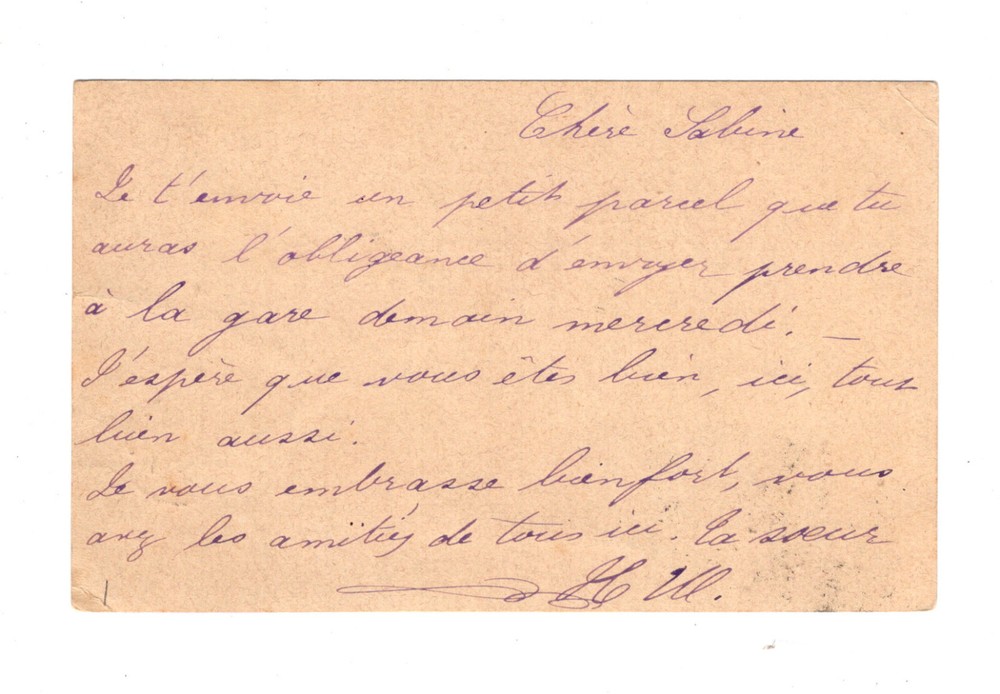 Chère Sabine
Je t'envoie un petit parcel que tu
auras l'obligeance d'envoyer prendre
à la gare demain mercredi. _
J'espère que vous êtes bien, ici, tous
bien aussi.
Je vous embrasse bien fort, vous
avez les amitiés de tous ici. Ta sœur
H M.